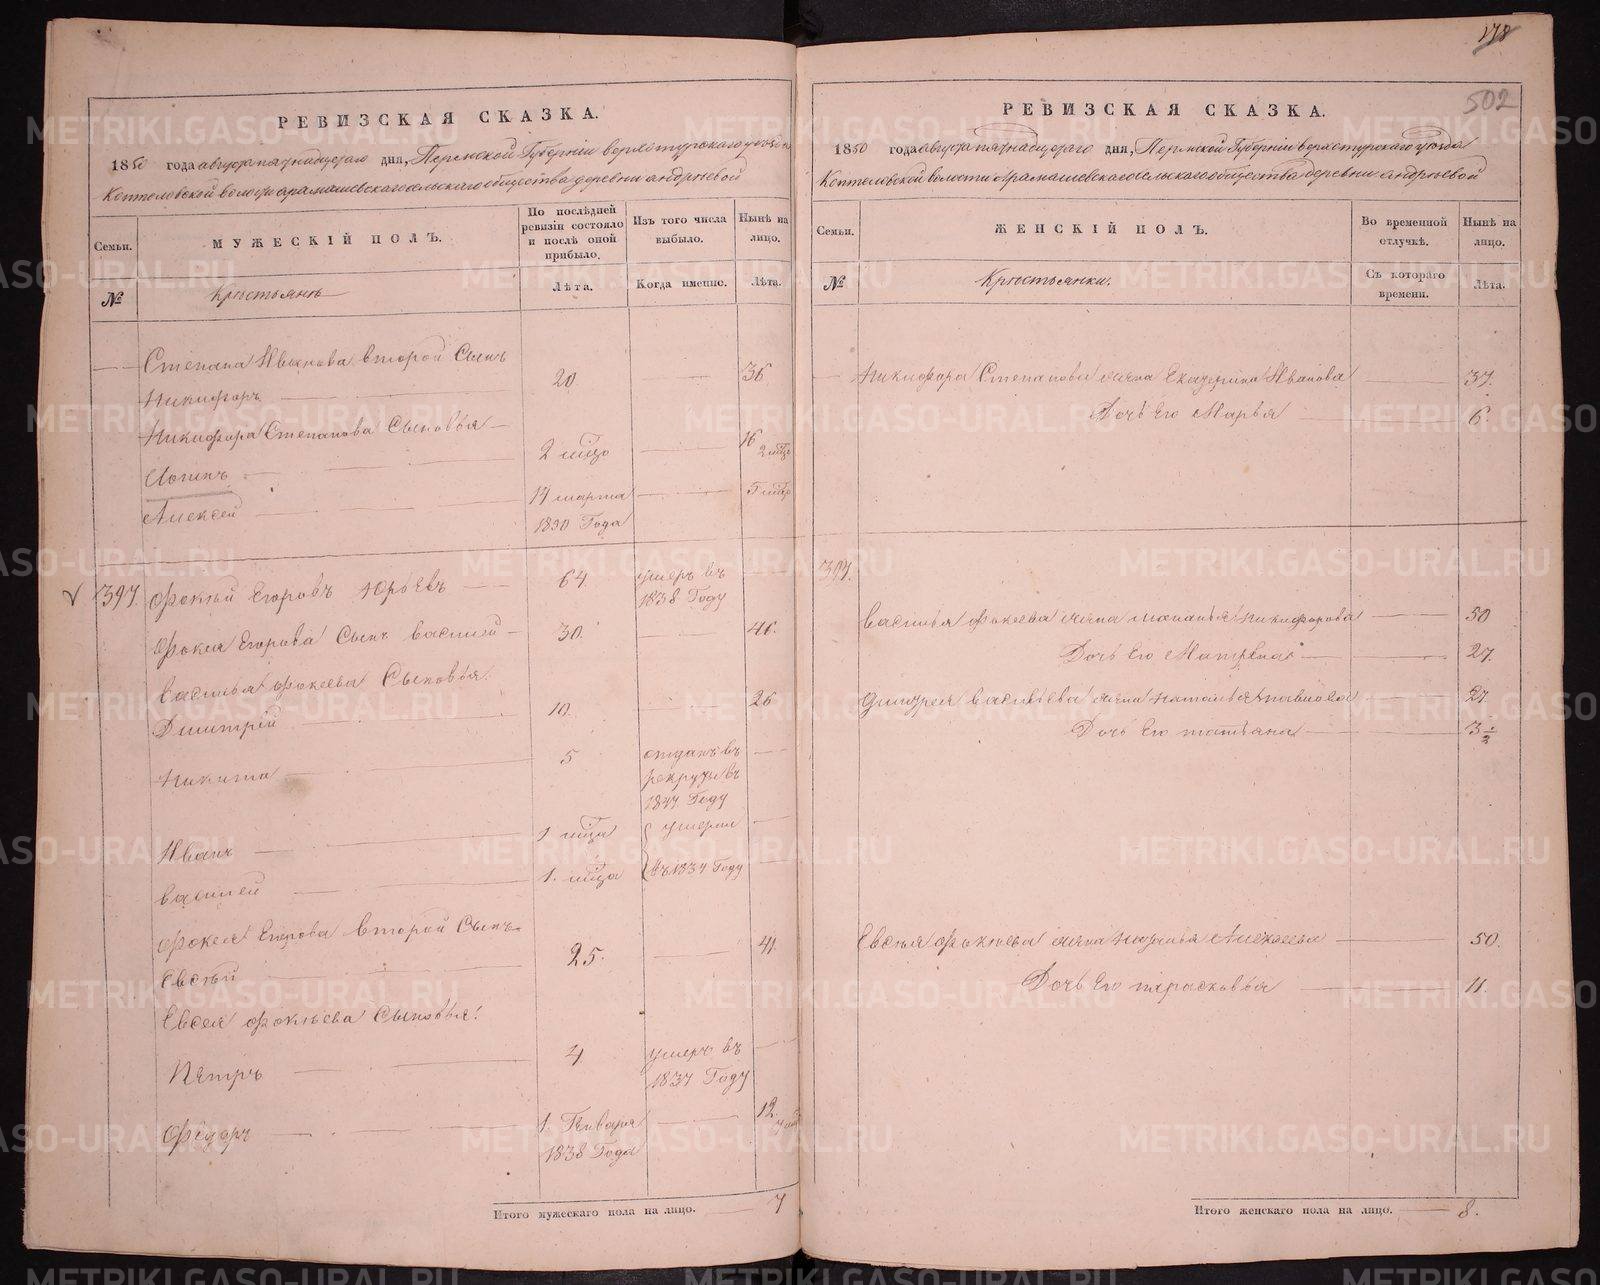 РЕВИЗСКАЯ СКАЗКА.
1850 года августа пятнадцатаго дня, Пермской Губерніи верхотурскаго уѣзда
Коптеловской волости арамашевскаго сельскаго общества деревни андрѣевой
Семьи.
МУЖЕСКІЙ ПОЛЪ.
По послѣдней ревизіи состояло и послѣ оной прибыло.
Изъ того числа выбыло.
Нынѣ на лицо.
№
Крѣстьянѣ
Лѣта.
Когда именно.
Лѣта.
Степана Иванова второй Сынъ
Никифоръ 20 36
Никифора Степанова Сыновья
2 мѣца 16 2 мѣца
Алексей 14 марта 1850 Года 5 мѣца
397. Фокѣй Егоровъ Юрьевъ 64 умеръ въ 1838 Году
Фокея Егорова Сынъ василей 30. 46.
василья фокеева Сыновья
Дмитрей 10. 26
Никита 5 отданъ въ рекруты въ 1847 Году
Иванъ 1 мѣца умерли
василей 1. мѣца въ 1834 Году
Фокея Егорова второй Сынъ
Евсѣй 25. 41
Евсея Фокѣева Сыновья:
Пѣтръ 4 умеръ въ 1837 Году
Фѣдоръ 1. Генваря 1838 Года 12.
Итого мужескаго пола на лицо. 7
178
502
РЕВИЗСКАЯ СКАЗКА.
1850 года августа пятнадцатаго дня, Пермской Губерніи верхотурскаго уѣзда
Коптеловской волости Арамашевскаго сельскаго общества деревни андрѣевой
Семьи.
ЖЕНСКІЙ ПОЛЪ.
Во временной отлучкѣ.
Нынѣ на лицо.
№
Крѣстьянки.
Съ котораго времени.
Лѣта.
Никифора Степанова жена Екатерина Иванова 37.
Дочь Его Марья 6.
397.
василья фокеева жена маланья никифорова 50
Дочь Его Матрена 27.
Дмитрея васильева жена наталья 27.
Дочь Его татьяна 3 1/2
Евсѣя Фокѣева жена Алексеева 50.
Дочь Его парасковья 11.
Итого женскаго пола на лицо. 8.
METRIKI.GASO-URAL.RU